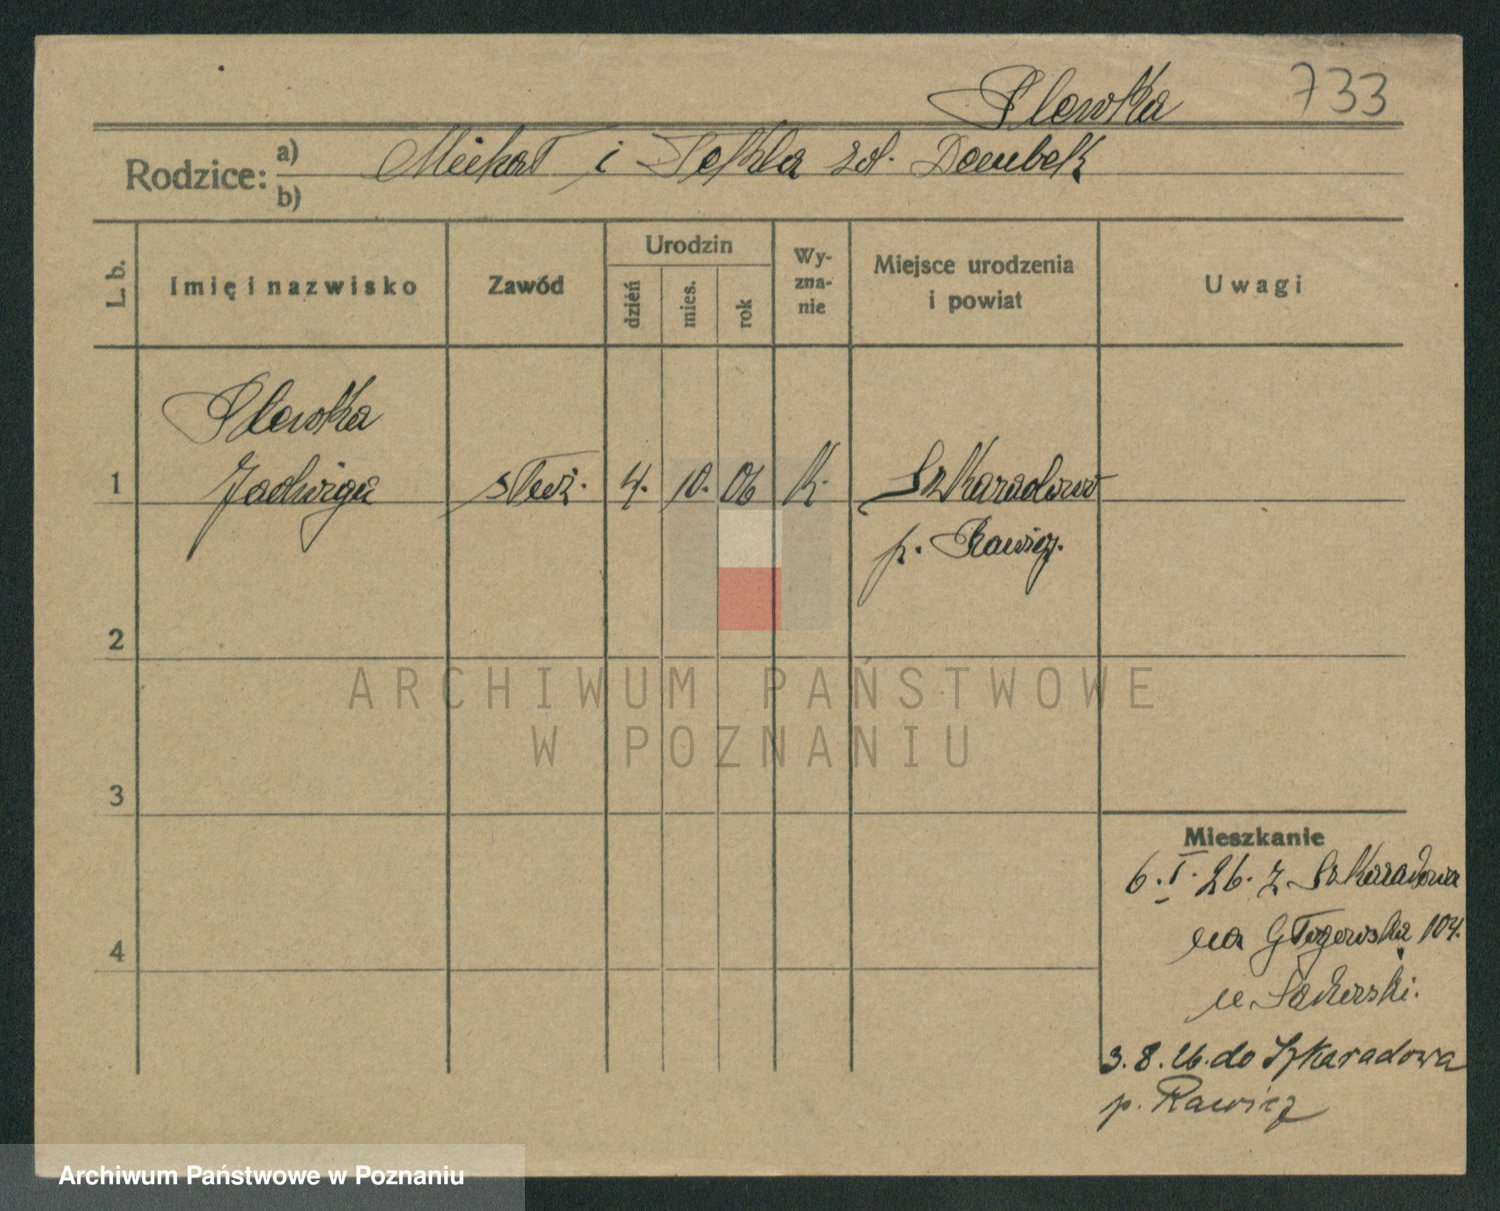 Plewka 733
Rodzice: a) Michał i Tekla zd. Dombek
b)
L. b. Imię i nazwisko Zawód Urodzin dzień mies. rok Wyznanie Miejsce urodzenia i powiat Uwagi
Plewka
1 Jadwiga służ. 4. 10. 06 K. Szkaradowo
p. Rawicz.
2
ARCHIWUM PAŃSTWOWE
W POZNANIU
3
Mieszkanie
6. I. 26. z Szkaradowa
na Głogowska 104.
4
u
3. 8. 26. do Szkaradowa
p. Rawicz
Archiwum Państwowe w Poznaniu